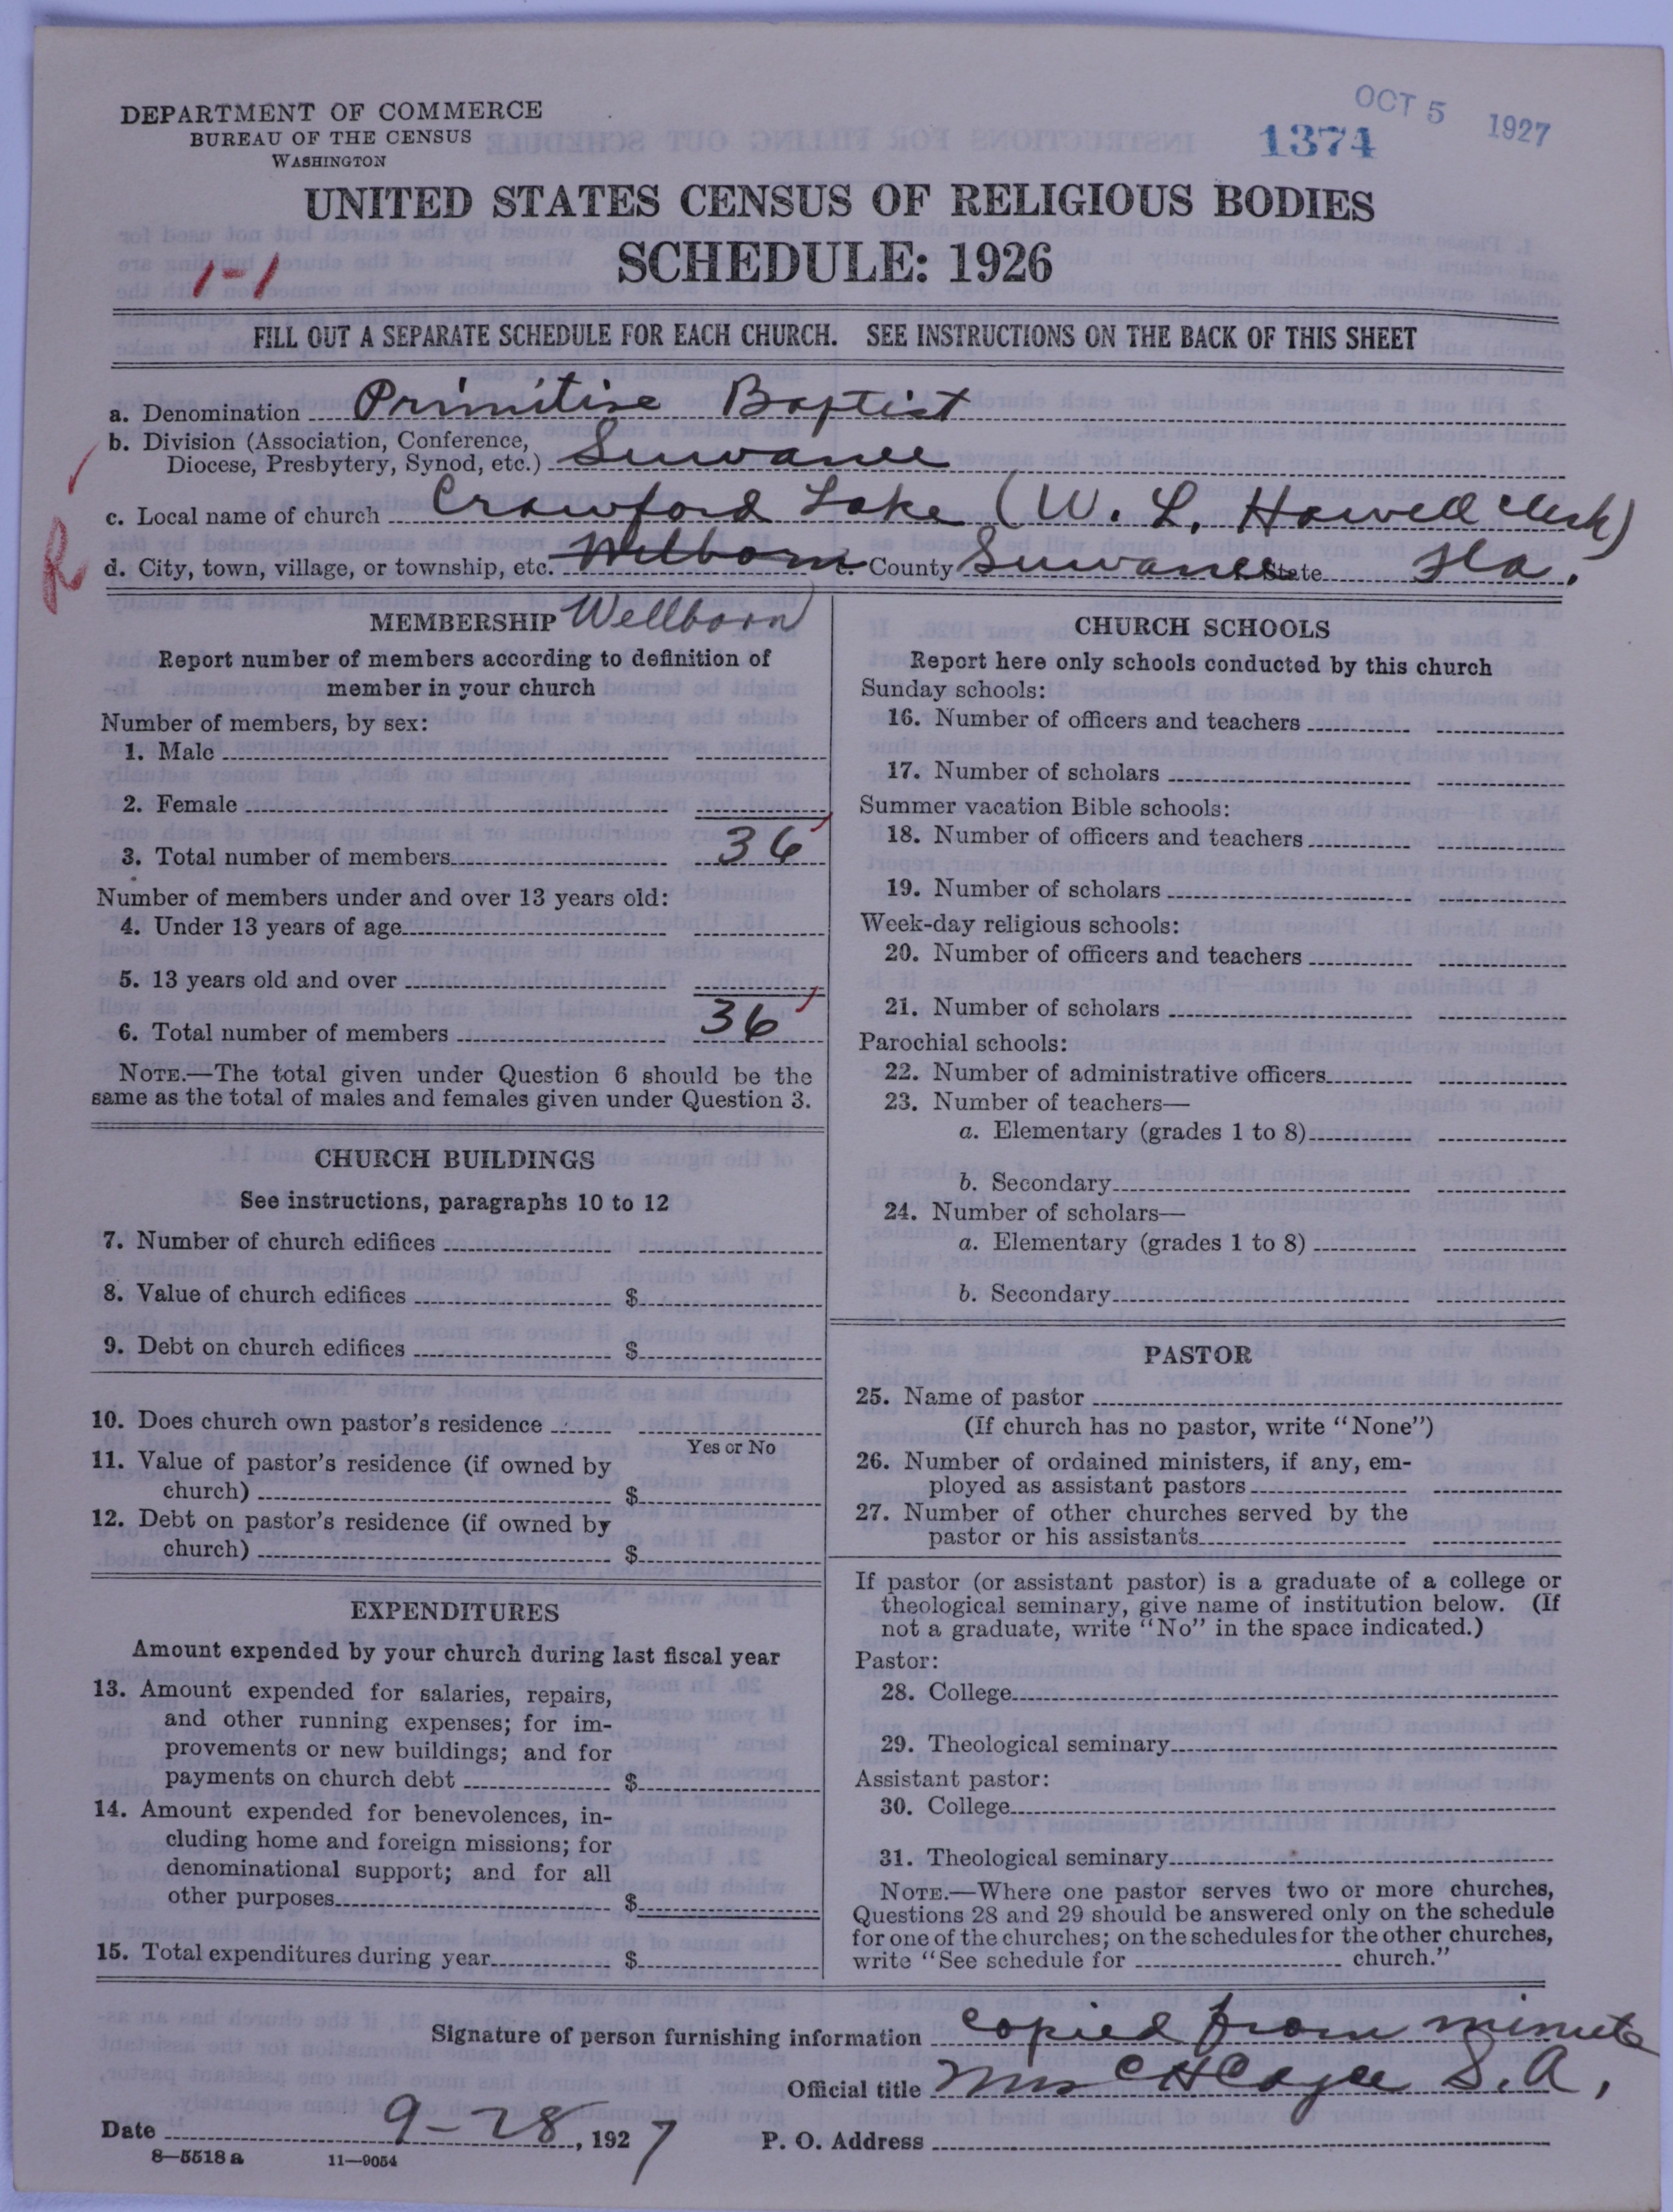 DEPARTMENT OF COMMERCE
BUREAU OF THE CENSUS
WASHINGTON
OCT 5 1927
1374
UNITED STATES CENSUS OF RELIGIOUS BODIES
SCHEDULE: 1926
1-1
FILL OUT A SEPARATE SCHEDULE FOR EACH CHURCH. SEE INSTRUCTIONS ON THE BACK OF THIS SHEET
a. Denomination Primitive Baptist
b. Division (Association, Conference,
Diocese, Presbytery, Synod, etc.) Suwanee
c. Local name of church Crawford Lake (W. L. Howell clerk)
R
d. City, town, village, or township, etc. Welborn e. County Suwanee f. State Fla.
MEMBERSHIP Wellborn
Report number of members according to definition of
member in your church
Number of members, by sex:
1. Male
2. Female
3. Total number of members 36
Number of members under and over 13 years old:
4. Under 13 years of age
5. 13 years old and over
6. Total number of members 36
NOTE.—The total given under Question 6 should be the
same as the total of males and females given under Question 3.
CHURCH BUILDINGS
See instructions, paragraphs 10 to 12
7. Number of church edifices
8. Value of church edifices $
9. Debt on church edifices $
10. Does church own pastor's residence
Yes or No
11. Value of pastor's residence (if owned by
church) $
12. Debt on pastor's residence (if owned by
church) $
EXPENDITURES
Amount expended by your church during last fiscal year
13. Amount expended for salaries, repairs,
and other running expenses; for im-
provements or new buildings; and for
payments on church debt $
14. Amount expended for benevolences, in-
cluding home and foreign missions; for
denominational support; and for all
other purposes $
15. Total expenditures during year $
CHURCH SCHOOLS
Report here only schools conducted by this church
Sunday schools:
16. Number of officers and teachers
17. Number of scholars
Summer vacation Bible schools:
18. Number of officers and teachers
19. Number of scholars
Week-day religious schools:
20. Number of officers and teachers
21. Number of scholars
Parochial schools:
22. Number of administrative officers
23. Number of teachers—
a. Elementary (grades 1 to 8)
b. Secondary
24. Number of scholars—
a. Elementary (grades 1 to 8)
b. Secondary
PASTOR
25. Name of pastor
(If church has no pastor, write "None")
26. Number of ordained ministers, if any, em-
ployed as assistant pastors
27. Number of other churches served by the
pastor or his assistants
If pastor (or assistant pastor) is a graduate of a college or
theological seminary, give name of institution below. (If
not a graduate, write "No" in the space indicated.)
Pastor:
28. College
29. Theological seminary
Assistant pastor:
30. College
31. Theological seminary
NOTE.—Where one pastor serves two or more churches,
Questions 28 and 29 should be answered only on the schedule
for one of the churches; on the schedules for the other churches,
write "See schedule for church."
Signature of person furnishing information copied from minute
Official title Mrs C H Cagle S.A.
Date 9-28, 1927 P. O. Address
8—5518 a 11—9054